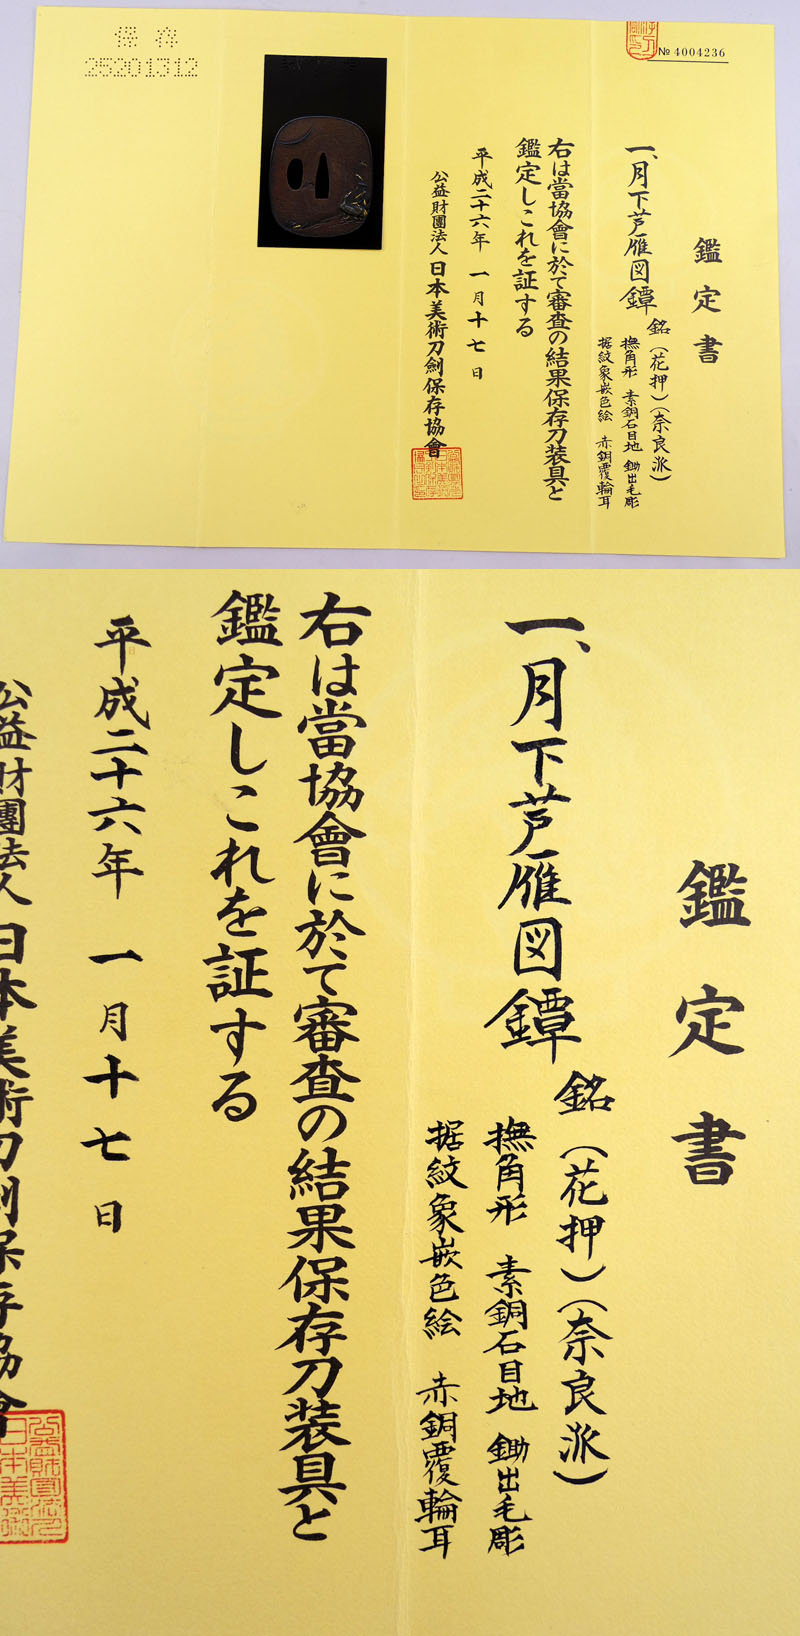 鑑定書
一、月下芦雁図鐔
銘（花押）（奈良派）
撫角形　素銅石目地　鋤出毛彫
据紋象嵌色絵　赤銅覆輪耳
右は當協會に於て審査の結果保存刀装具と
鑑定しこれを証する
平成二十六年　一月十七日
公益財團法人　日本美術刀劍保存協會
№ 4004236
保存
25201312
鑑定書
一、月下芦雁図鐔
銘（花押）（奈良派）
撫角形　素銅石目地　鋤出毛彫
据紋象嵌色絵　赤銅覆輪耳
右は當協會に於て審査の結果保存刀装具と
鑑定しこれを証する
平成二十六年　一月十七日
公益財團法人　日本美術刀劍保存協會